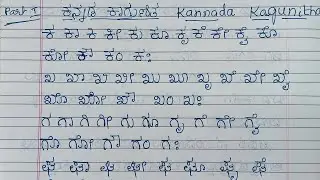 Part I ಕನ್ನಡ ಕಾಗುಣಿತ Kannada Kagunitha
ಕ ಕಾ ಕಿ ಕೀ ಕು ಕೂ ಕೃ ಕೆ ಕೇ ಕೈ ಕೊ
ಕೋ ಕೌ ಕಂ ಕಃ
ಖ ಖಾ ಖಿ ಖೀ ಖು ಖೂ ಖೃ ಖೆ ಖೇ ಖೈ
ಖೊ ಖೋ ಖೌ ಖಂ ಖಃ
ಗ ಗಾ ಗಿ ಗೀ ಗು ಗೂ ಗೃ ಗೆ ಗೇ ಗೈ
ಗೊ ಗೋ ಗೌ ಗಂ ಗಃ
ಘ ಘಾ ಘಿ ಘೀ ಘು ಘೂ ಘೃ ಘೆ